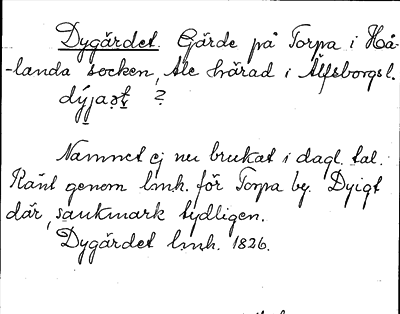 Dygärdet. Gärde på Torpa i Hå-
-landa socken, Ale härad i Älfsborgsl.
dýja ?
Namnet ej nu brukat i dagl. tal.
Känt genom lmh. för Torpa by. Dyigt
där, sankmark tydligen.
Dygärdet lmh. 1826.